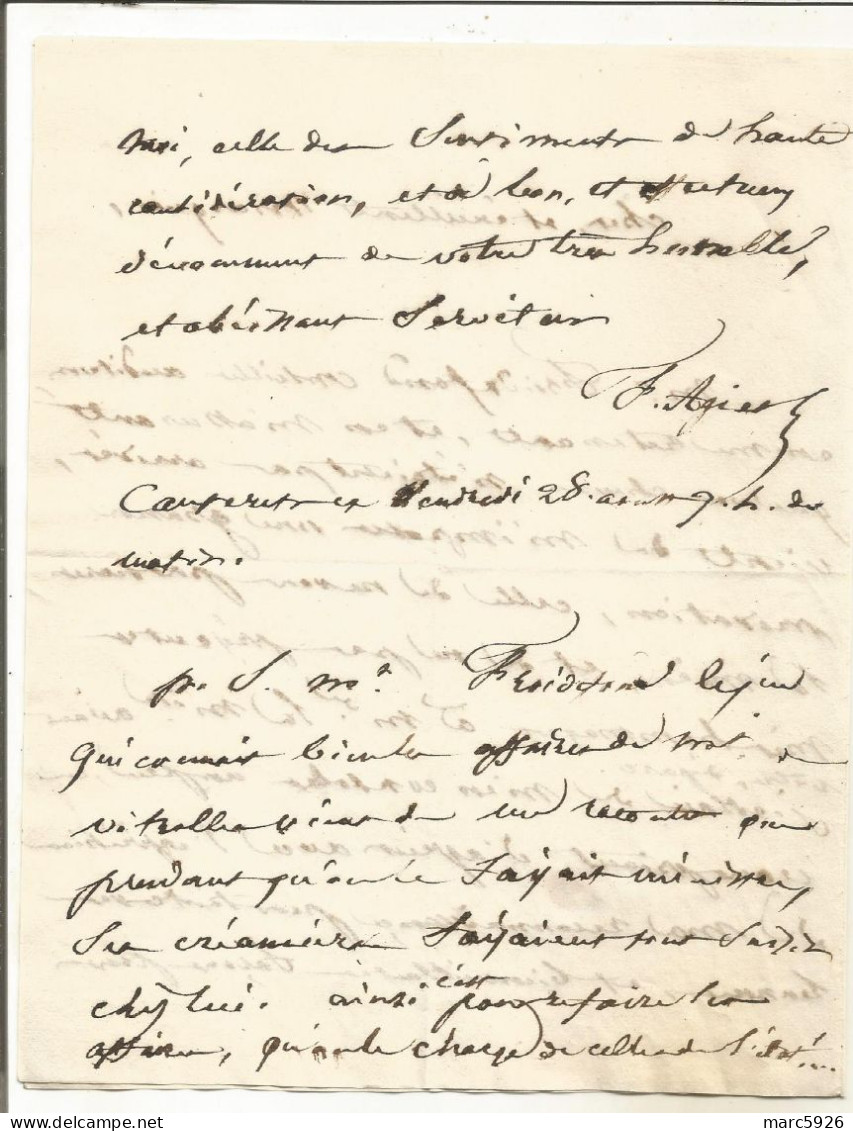 moi, celle des Sentiments de haute
considération, et de bon, et
dévouement de votre très humble,
et obéissant Serviteur
F. Agier
Cauterets ce Vendredi 28. aout 9. h. du
matin.
p. S. mr. Froidefond lejeu
qui connait bien les affaires de Mr. de
vitrolles vient de me raconter que
pendant qu'on le faisait ministre,
Ses créanciers faisaient tout Saisir
chez lui. ainsi c'est pour refaire Ses
affaires, qu'on le charge de celles de l'état...
marc5926